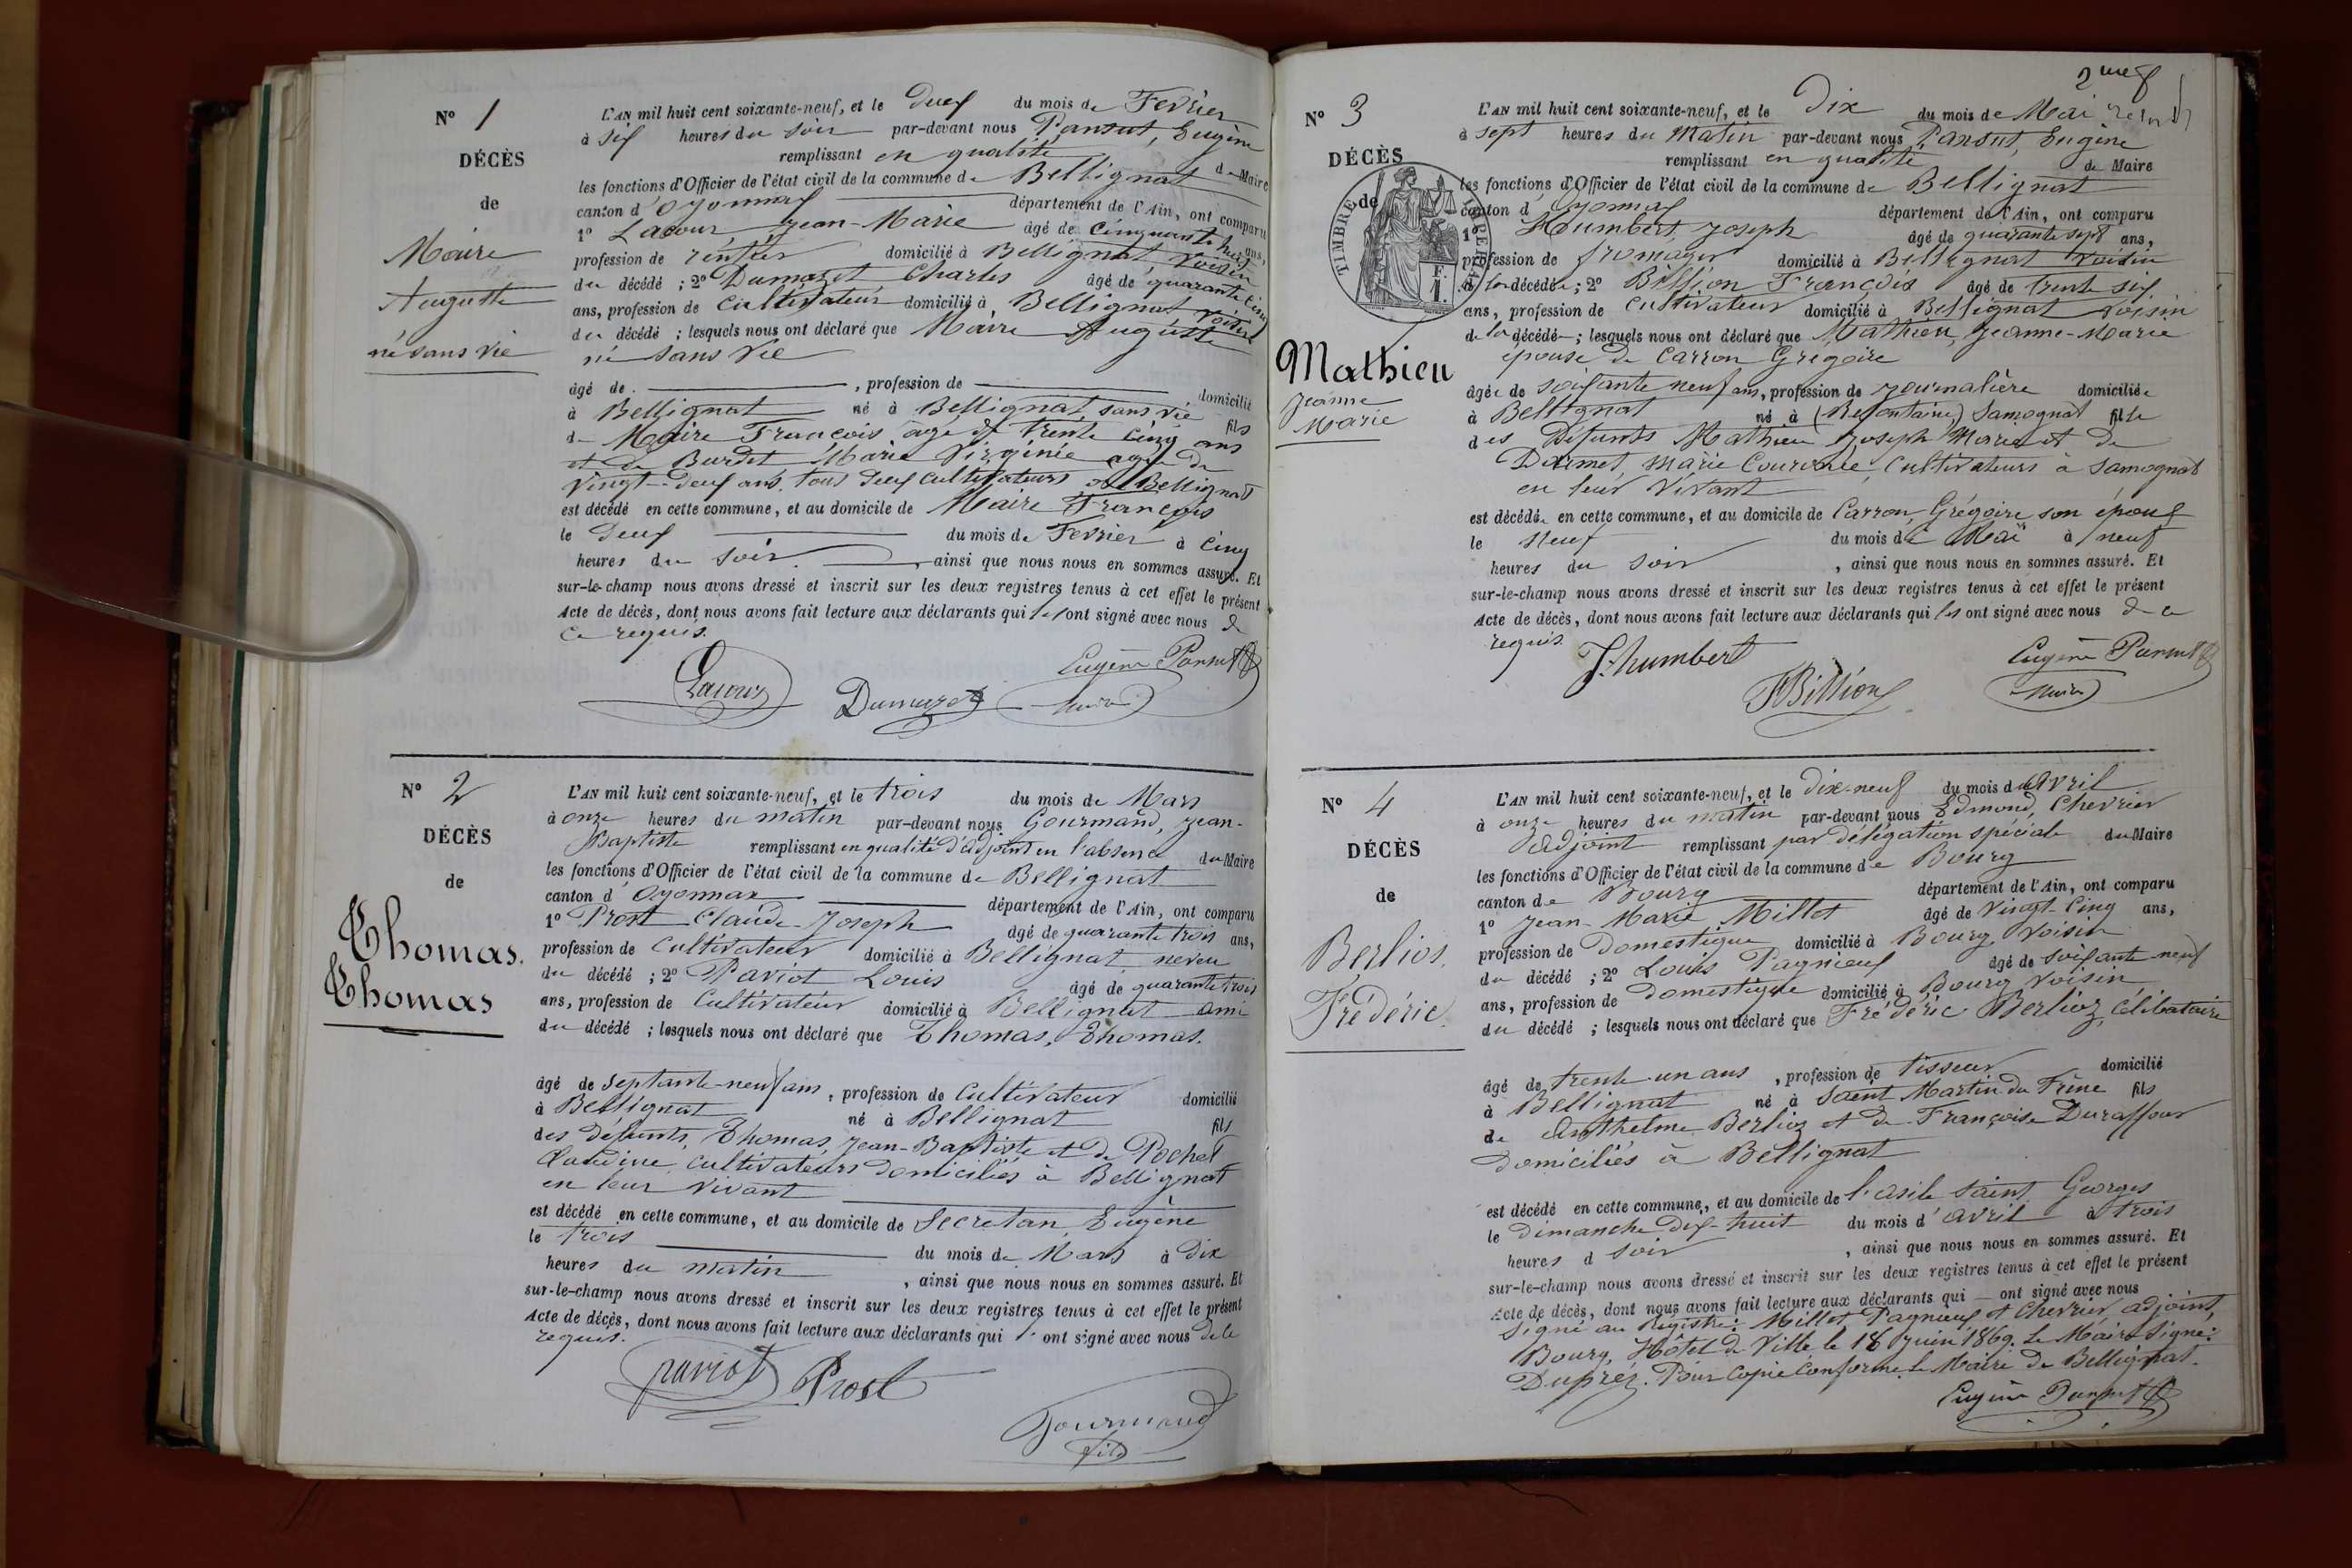 N° 1
DÉCÈS
de
Maire
Auguste
né sans vie
L'AN mil huit cent soixante-neuf, et le deux du mois de Fevrier
à six heures du soir par-devant nous Pansut, Eugène
remplissant en qualité de Maire
les fonctions d'Officier de l'état civil de la commune de Bellignat
canton d'Oyonnax département de l'Ain, ont comparu
1° Lacour Jean-Marie âgé de cinquante huit ans,
profession de rentier domicilié à Bellignat, voisin
du décédé ; 2° Dumazet Charles âgé de quarante cinq
ans, profession de Cultivateur domicilié à Bellignat voisin
du décédé ; lesquels nous ont déclaré que Maire Auguste
né sans vie
âgé de , profession de domicilié
à Bellignat né à Bellignat sans vie fils
de Maire François âgé de trente cinq ans
et de Burdet Marie Virginie agée de
vingt-deux ans. tous deux cultivateurs à Bellignat
est décédé en cette commune, et au domicile de Maire François
le deux du mois de Fevrier à cinq
heures du soir , ainsi que nous nous en sommes assuré. Et
sur-le-champ nous avons dressé et inscrit sur les deux registres tenus à cet effet le présent
Acte de décès, dont nous avons fait lecture aux déclarants qui les ont signé avec nous de
ce requis.
Lacour Dumazet Eugène Pansut
Maire
N° 2
DÉCÈS
de
Thomas.
Thomas
L'AN mil huit cent soixante-neuf, et le trois du mois de Mars
à onze heures du matin par-devant nous Gourmand, Jean-
Baptiste remplissant en qualité d'adjoint en l'absence du Maire
les fonctions d'Officier de l'état civil de la commune de Bellignat
canton d'Oyonnax département de l'Ain, ont comparu
1° Prost Claude-Joseph âgé de quarante trois ans,
profession de Cultivateur domicilié à Bellignat neveu
du décédé ; 2° Paviot Louis âgé de quarante trois
ans, profession de Cultivateur domicilié à Bellignat ami
du décédé ; lesquels nous ont déclaré que Thomas, Thomas.
âgé de septante-neuf ans , profession de Cultivateur domicilié
à Bellignat né à Bellignat fils
des défunts, Thomas, Jean-Baptiste et de Rochet
Claudine, cultivateurs domiciliés à Bellignat
en leur vivant
est décédé en cette commune, et au domicile de Secretan, Eugène
le trois du mois de Mars à dix
heures du matin , ainsi que nous nous en sommes assuré. Et
sur-le-champ nous avons dressé et inscrit sur les deux registres tenus à cet effet le présent
Acte de décès, dont nous avons fait lecture aux déclarants qui ont signé avec nous de le
requis.
paviot Prost
Gourmand
fils
2me f
N° 3
DÉCÈS
de
TIMBRE IMPERIAL
Mathieu
Jeanne
Marie
L'AN mil huit cent soixante-neuf, et le Dix du mois de Mai
à sept heures du matin par-devant nous Pansut, Eugène
remplissant en qualité de Maire
les fonctions d'Officier de l'état civil de la commune de Bellignat
canton d'Oyonnax département de l'Ain, ont comparu
1° Humbert Joseph âgé de quarante sept ans,
profession de fromager domicilié à Bellignat voisin
de la décédée ; 2° Billion François âgé de trente six
ans, profession de cultivateur domicilié à Bellignat voisin
de la décédée ; lesquels nous ont déclaré que Mathieu, Jeanne-Marie
épouse de Carron Grégoire
âgée de soixante neuf ans, profession de journalière domiciliée
à Bellignat né à Samognat fille
des défunts Mathieu Joseph Marie et de
Marie , cultivateurs à Samognat
en leur vivant
est décédée en cette commune, et au domicile de Carron, Grégoire son époux
le neuf du mois de Mai à neuf
heures du soir , ainsi que nous nous en sommes assuré. Et
sur-le-champ nous avons dressé et inscrit sur les deux registres tenus à cet effet le présent
Acte de décès, dont nous avons fait lecture aux déclarants qui les ont signé avec nous de ce
requis.
J. humbert F Billion Eugène Pansut
Maire
N° 4
DÉCÈS
de
Berlios.
Frédéric.
L'AN mil huit cent soixante-neuf, et le dix-neuf du mois d'Avril
à onze heures du matin par-devant nous Edmond, Chevrier
Adjoint remplissant par délégation spéciale du Maire
les fonctions d'Officier de l'état civil de la commune de Bourg
canton de Bourg département de l'Ain, ont comparu
1° Jean-Marie Millet âgé de vingt-cinq ans,
profession de domestique domicilié à Bourg, voisin
du décédé ; 2° Louis Pagnieux âgé de soixante-neuf
ans, profession de domestique domicilié à Bourg, voisin
du décédé ; lesquels nous ont déclaré que Frédéric Berlioz, célibataire
âgé de trente-un ans , profession de tisseur domicilié
à Bellignat né à Saint Martin du Frêne fils
de Anthelme Berlioz et de Françoise Duraffour
domiciliés à Bellignat
est décédé en cette commune, et au domicile de l'asile Saint Georges
le dimanche dix-huit du mois d'avril à trois
heures d soir , ainsi que nous nous en sommes assuré. Et
sur-le-champ nous avons dressé et inscrit sur les deux registres tenus à cet effet le présent
Acte de décès, dont nous avons fait lecture aux déclarants qui — ont signé avec nous
Signé au Registre : Millet, Pagnieux et Chevrier, adjoint,
Bourg, Hôtel de Ville le 18 Juin 1869. Le Maire Signé :
Duprez. Pour Copie Conforme. Le Maire de Bellignat.
Eugène Pansut